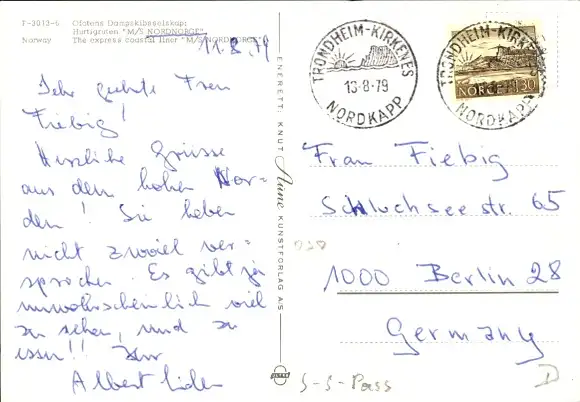 P-3013-6 Ofotens Dampskibsselskap:
Hurtigruten "M/S NORDNORGE".
Norway The express coastal liner "M/S NORDNORGE"
11.8.79
Sehr geehrte Frau
Fiebig!
Herzliche Grüsse
aus dem hohen Nor-
den! Sie haben
nicht zuviel ver-
sprochen. Es gibt ja
unwahrscheinlich viel
zu sehen, und zu
essen!! Ihr
Albert
ENERETT: KNUT Aune KUNSTFORLAG AS
TRONDHEIM-KIRKENES
13-8-79
NORDKAPP
TRONDHEIM-KIRKENES
NORGE 130
NORDKAPP
Frau Fiebig
Schluchseestr. 65
1000 Berlin 28
Germany
S-S-Pass
D